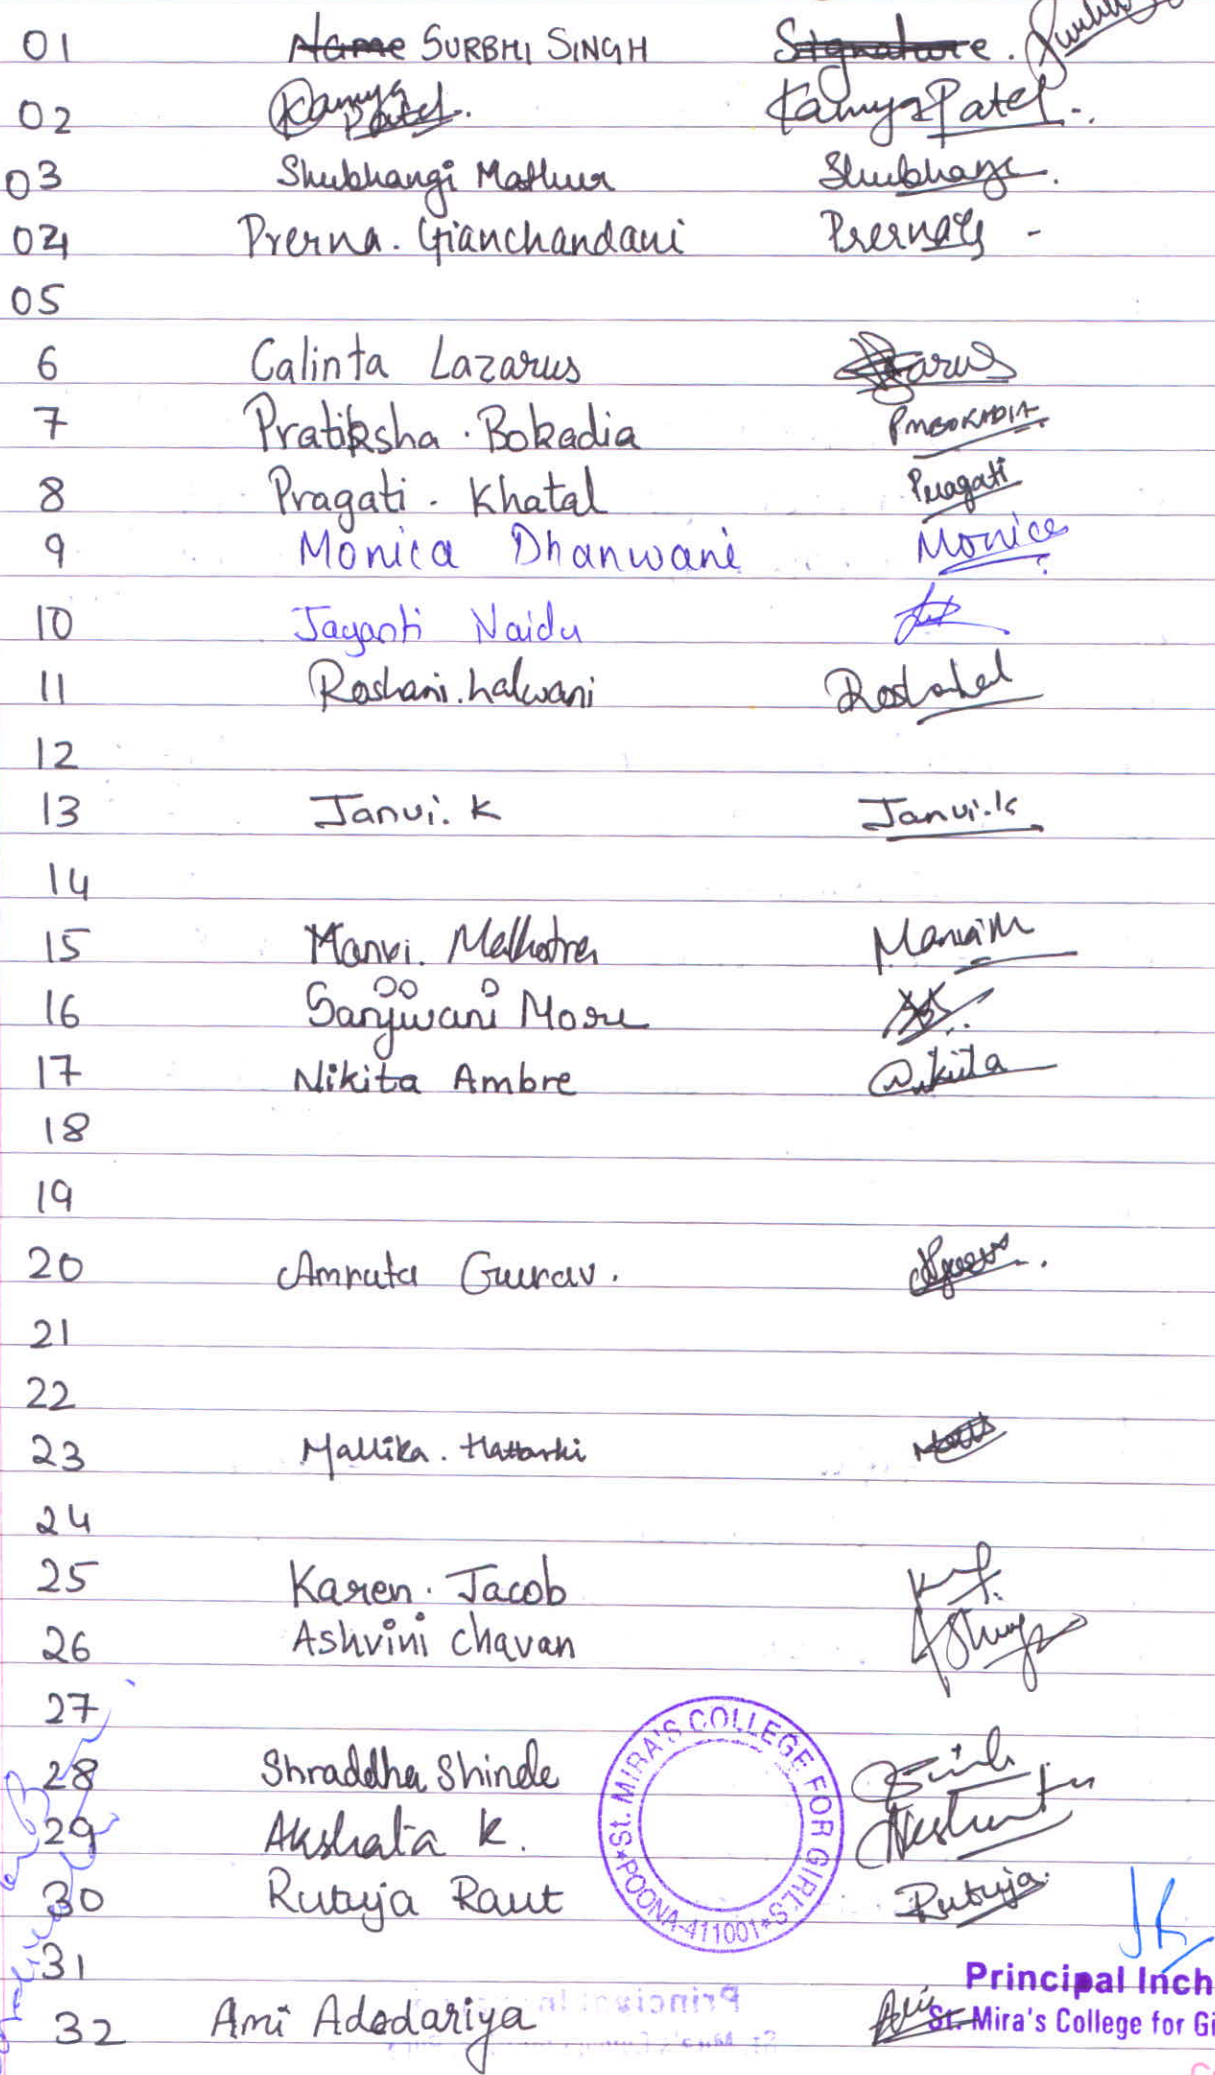 01 Name SURBHI SINGH Signature.
02 Kamya Patel. Kamya Patel
03 Shubhangi Mathur Shubhangi.
04 Prerna. Gianchandani PrernaG -
05
6 Calinta Lazarus
7 Pratiksha . Bokadia PMBOKADIA
8 Pragati . Khatal Pragati
9 Monica Dhanwani Monica
10 Jayanti Naidu
11 Roshani.Lalwani
12
13 Janvi. K Janvi.K
14
15 Manvi. Malhotra Manvi M
16 Sanjiwani More
17 Nikita Ambre Nikita
18
19
20 Amruta Gurav.
21
22
23 Mallika. Hattarki
24
25 Karen. Jacob
26 Ashvini Chavan
27
28 Shraddha Shinde
29 Akshata K.
30 Rutuja Raut Rutuja.
31
32 Ami Adodariya
St. MIRA'S COLLEGE FOR GIRLS
POONA-411001
Principal Inch
St. Mira's College for Gi